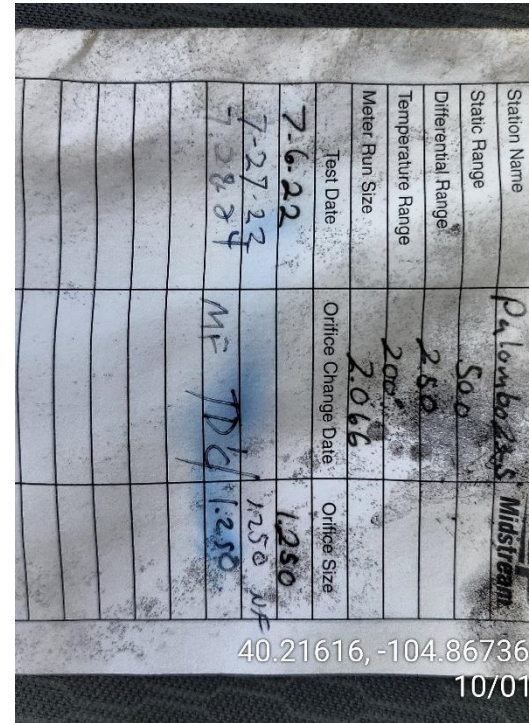 Midstream
Station Name Palombo 23,5
Static Range 500
Differential Range 250
Temperature Range 200°
Meter Run Size 2.066
Test Date Orifice Change Date Orifice Size
7-6-22 1.250
7-27-23 1.250 NF
7.08 24 MF 1.250
40.21616, -104.86736
10/01